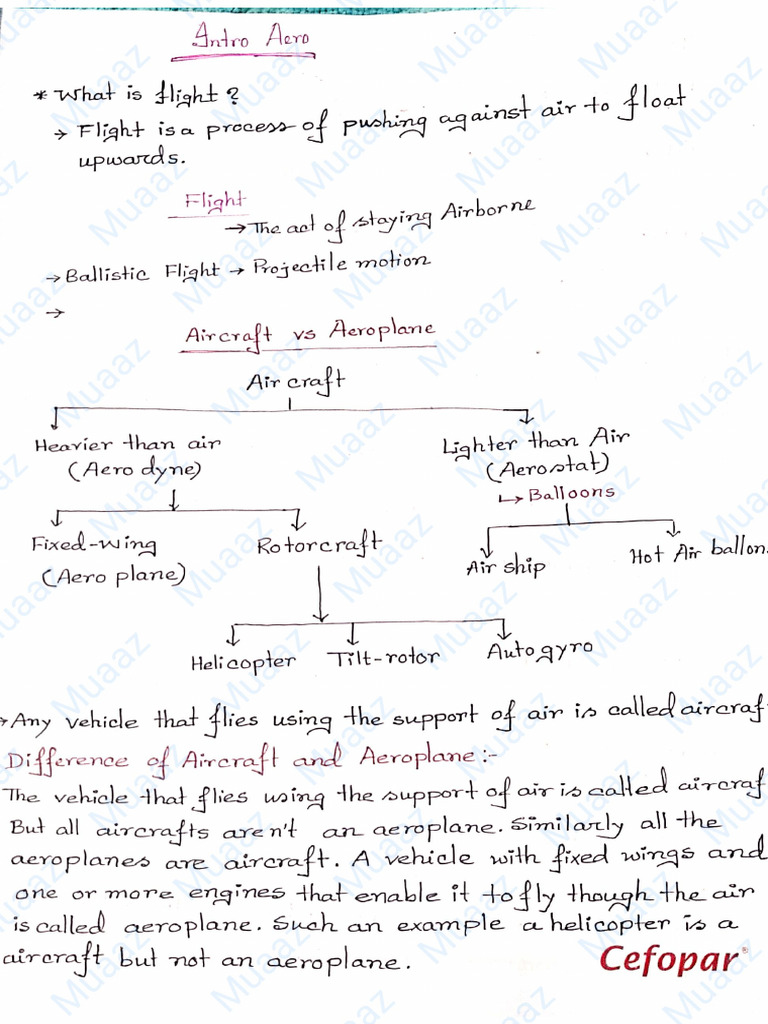 Intro Aero
* What is flight?
→ Flight is a process of pushing against air to float
upwards.
Flight
→ The act of staying Airborne
→ Ballistic Flight → Projectile motion
→
Aircraft vs Aeroplane
Air craft
Heavier than air
(Aero dyne)
Lighter than Air
(Aerostat)
↳ Balloons
Fixed-wing
(Aero plane)
Rotorcraft
Air ship
Hot Air ballon
Helicopter Tilt-rotor Autogyro
→ Any vehicle that flies using the support of air is called aircraf
Difference of Aircraft and Aeroplane:-
The vehicle that flies using the support of air is called aircraf
But all aircrafts aren't an aeroplane. Similarly all the
aeroplanes are aircraft. A vehicle with fixed wings and
one or more engines that enable it to fly though the air
is called aeroplane. Such an example a helicopter is a
aircraft but not an aeroplane.
Cefopar®
Muaaz